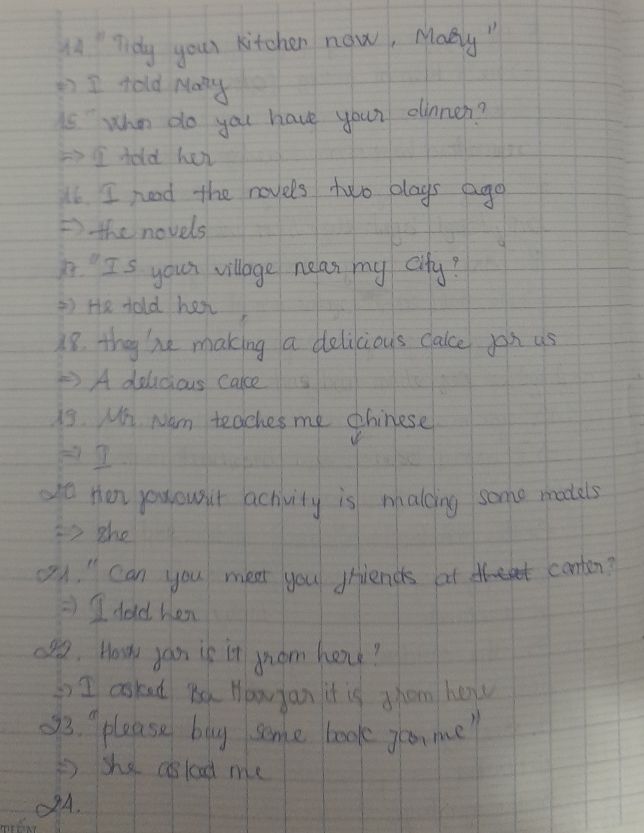 14. "Tidy your kitchen now, Mary"
=> I told Mary
15. "When do you have your dinner?
=> I told her
16. I read the novels two days ago
=> the novels
17. "Is your village near my city?
=> He told her
18. they're making a delicious cake for us
=> A delicious cake
19. Mr. Nam teaches me Chinese
=> I
20. Her favourit activity is making some models
=> she
21. "Can you meet you friends at center?
=> I told her
22. How far is it from here?
=> I asked Ba How far it is from here
23. "please buy some book for me"
=> she asked me
24.